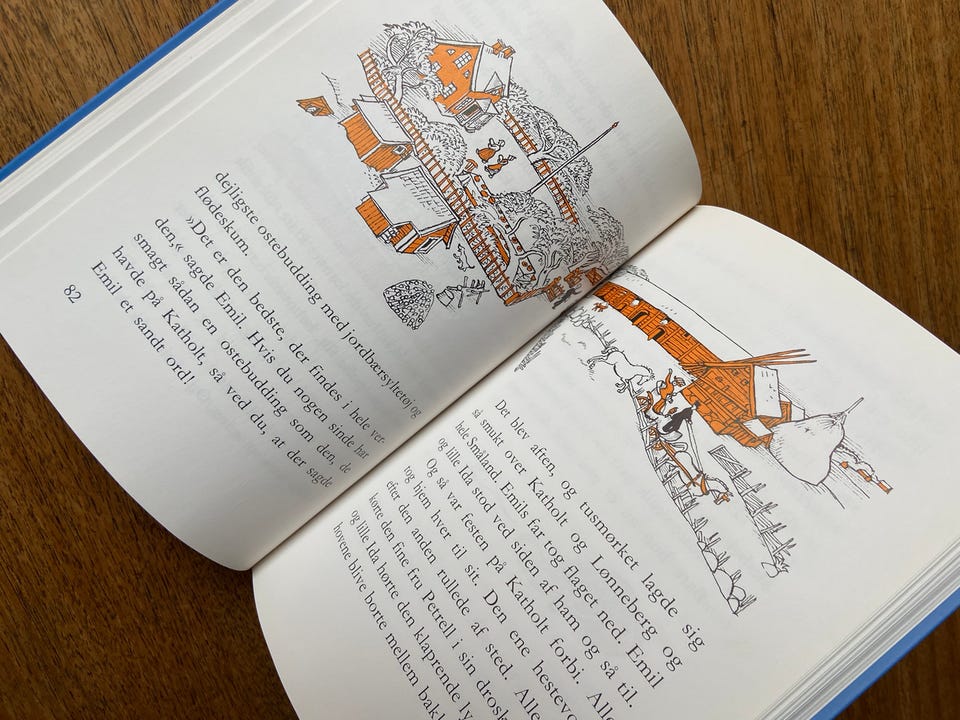 dejligste ostebudding med jordbærsyltetøj og
flødeskum.
»Det er den bedste, der findes i hele ver-
den.« sagde Emil. Hvis du nogen sinde har
smagt sådan en ostebudding som den, de
havde på Katholt, så ved du, at der sagde
Emil et sandt ord!
82
Det blev aften, og tusmørket lagde sig
så smukt over Katholt og Lønneberg og
hele Småland. Emils far tog flaget ned. Emil
og lille Ida stod ved siden af ham og så til.
Og så var festen på Katholt forbi. Alle
tog hjem hver til sit. Den ene hestevo
efter den anden rullede af sted. Alle
kørte den fine fru Petrell i sin drosk
og lille Ida hørte den klaprende ly
hovene blive borte mellem bakk